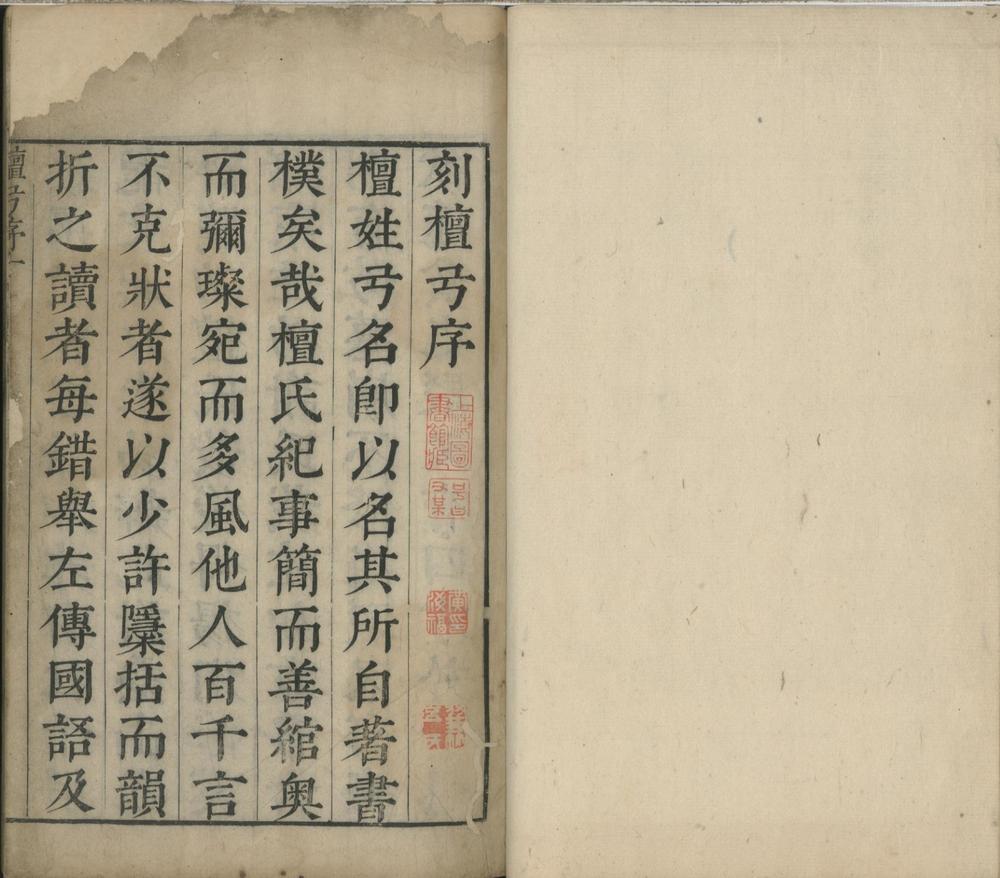 刻檀弓序
檀姓弓名卽以名其所自著書
樸矣哉檀氏紀事簡而善綰奥
而彌璨宛而多風他人百千言
不克狀者遂以少許檃括而韻
折之讀者每錯舉左傳國語及
檀弓序一
上海圖書館藏